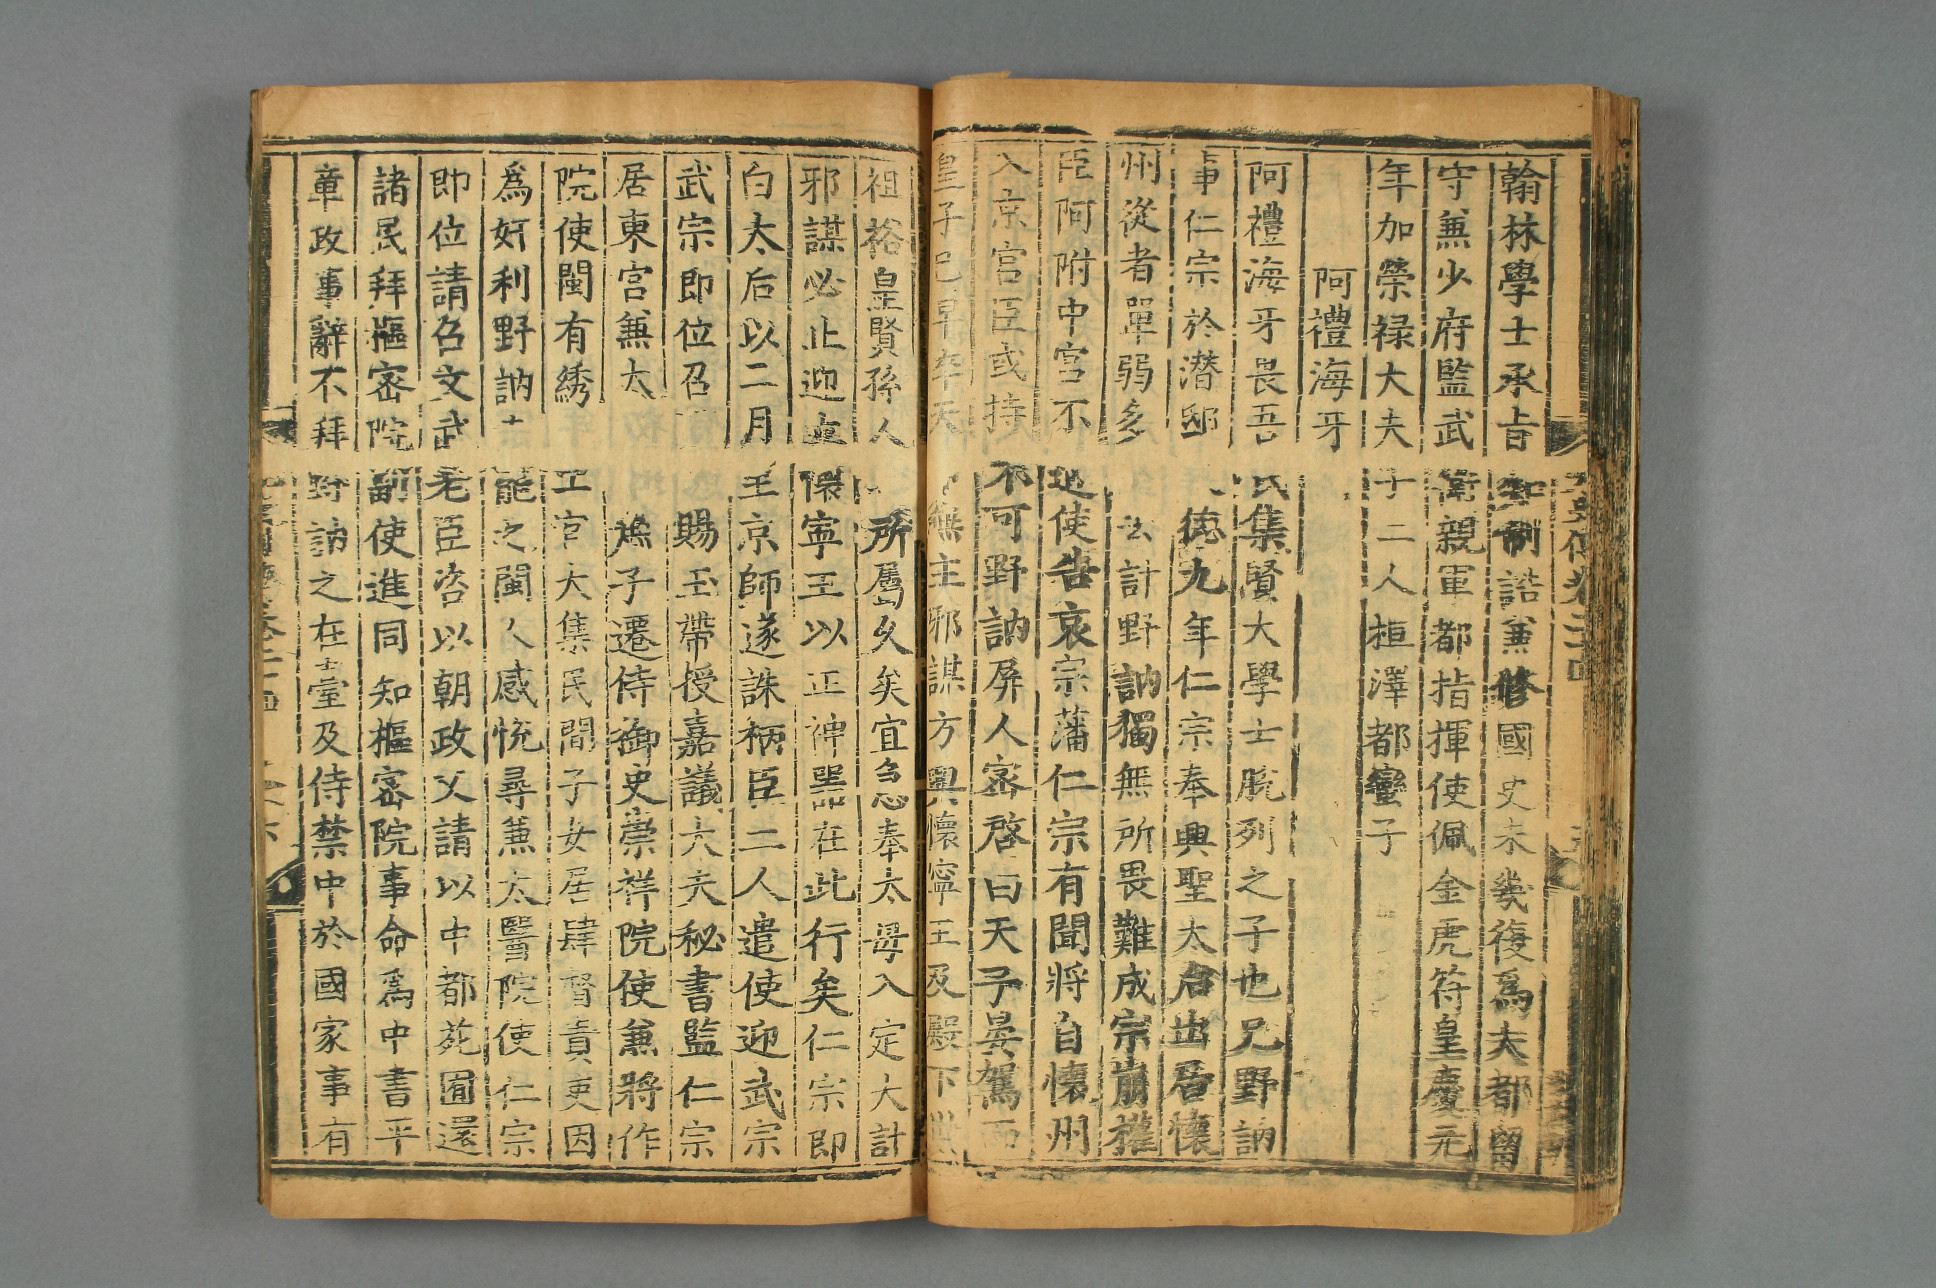 翰林學士承旨知制誥兼修國史未幾復爲大都留
守兼少府監武衛親軍都指揮使佩金虎符皇慶元
年加榮禄大夫子二人桓澤都蠻子
阿禮海牙
阿禮海牙畏吾氏集賢大學士脫列之子也兄野訥
事仁宗於潜邸德九年仁宗奉興聖太后出居懷
州從者單弱多計野訥獨無所畏難成宗崩權
臣阿附中宮不使告哀宗藩仁宗有聞將自懷州
入京宮臣或持不可野訥屏人密啓曰天子晏駕而
皇子已早卒天無主邪謀方興懷寧王及殿下世
祖裕皇賢孫人所屬久矣宜急奉太母入定大計
邪謀必止迎立懷寧王以正神器在此行矣仁宗即
白太后以二月至京師遂誅柄臣二人遣使迎武宗
武宗即位召賜玉帶授嘉議大夫秘書監仁宗
居東宮兼太子遷侍御史崇祥院使兼將作
院使閩有綉工官大集民間子女居肆督責吏因
爲奸利野訥能之閩人感悅尋兼太醫院使仁宗
即位請召文武老臣咨以朝政又請以中都苑囿還
諸民拜樞密院副使進同知樞密院事命爲中書平
章政事辭不拜野訥之在臺及侍禁中於國家事有
元史傳卷二十四
卷二十四
六